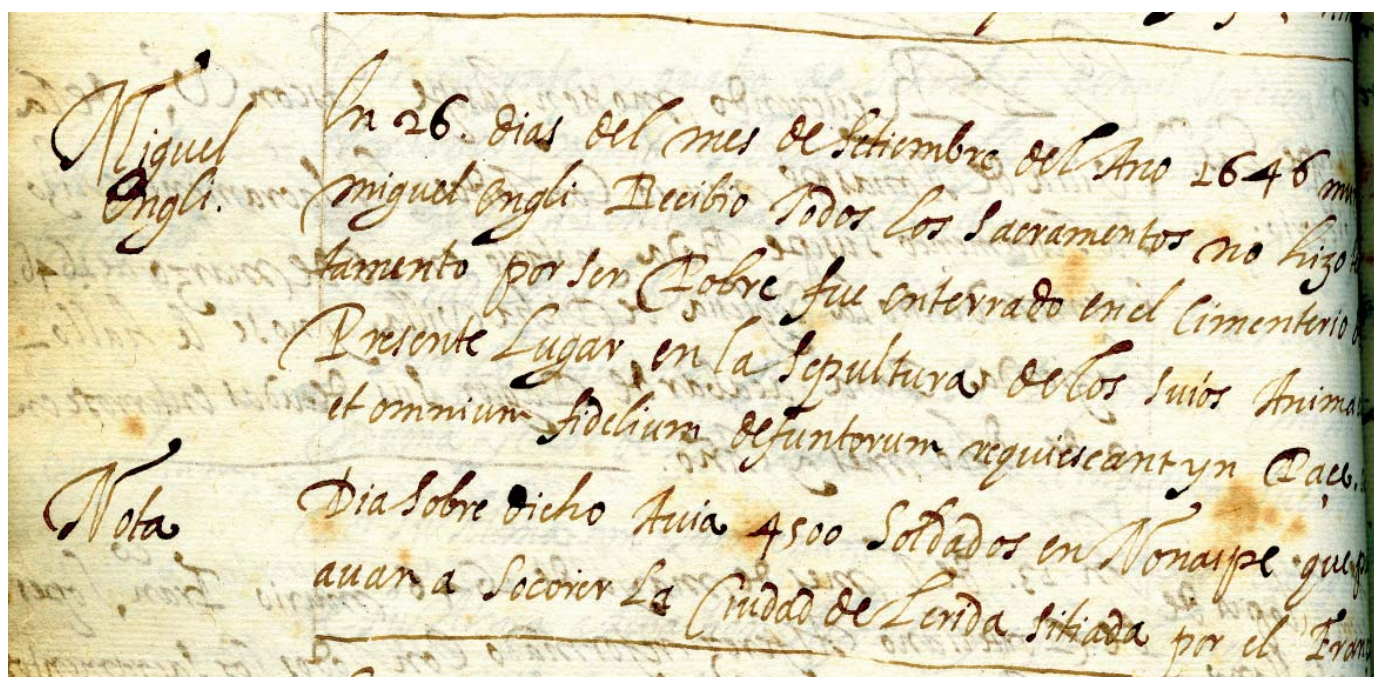 Miguel
Engli.
In 26. dias del mes de Setiembre del Ano 1646
miguel Engli Recibio Todos los Sacramentos no hizo
tamento por ser Pobre fue enterrado en el Cimenterio
Presente Lugar en la Sepultura de los suios
et omnium fidelium defuntorum requiescant yn Pace.
Nota
Dia sobre dicho Auia 4500 Soldados en Nonaspe
auan a Socorer La Ciudad de Lerida sitiada por el